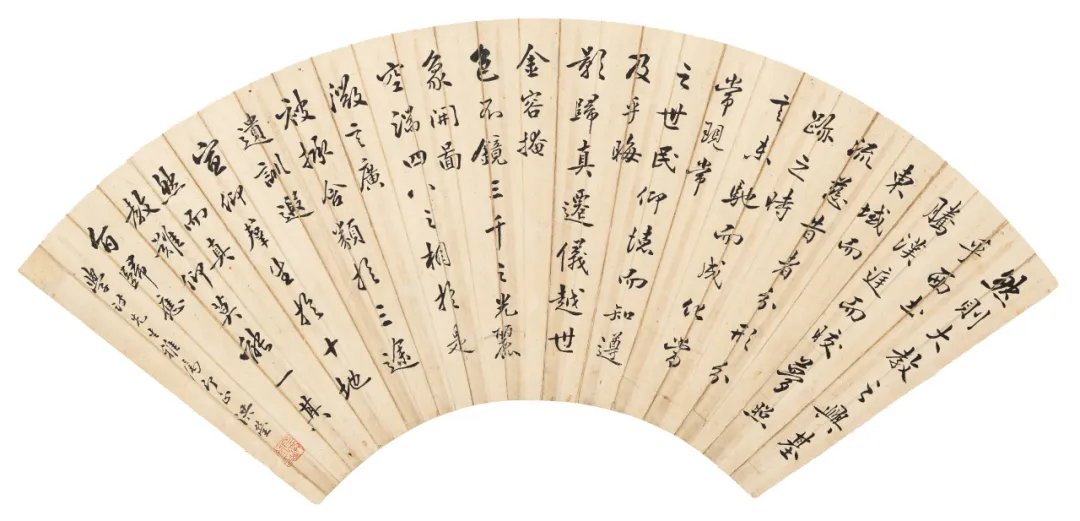 然則大教之興基
乎西土
騰漢庭而皎夢照
東域而
流慈昔者分形分
跡之時
言未馳而成化當
常現常
之世民仰德而知遵
及乎晦
影歸真遷儀越世
金容掩
色不鏡三千之光麗
象開圖
空端四八之相於是
微言廣
被拯含類於三途
遺訓遐
宣仰群生於十地
然而真
教難仰莫能一其
旨歸應
學詩先生雅屬 洪瑩